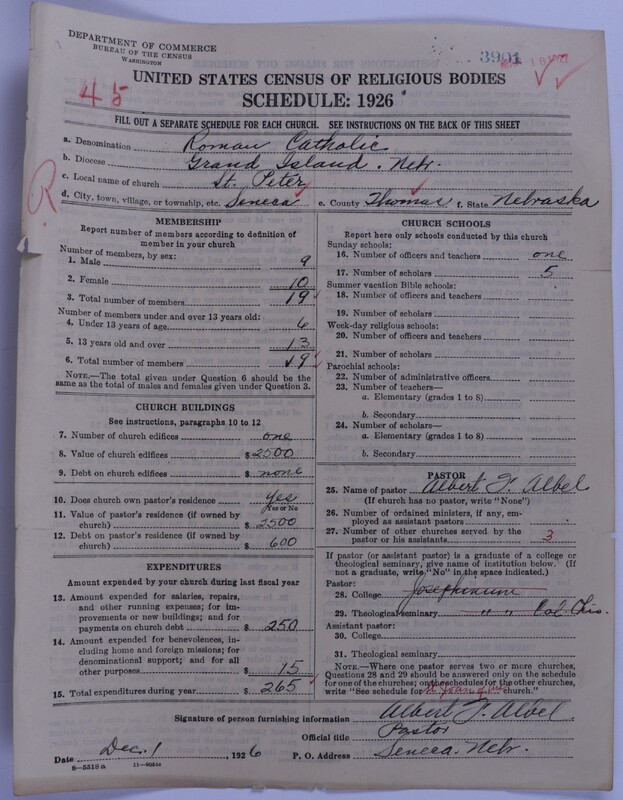 DEPARTMENT OF COMMERCE
BUREAU OF THE CENSUS
WASHINGTON
3901
45
UNITED STATES CENSUS OF RELIGIOUS BODIES
SCHEDULE: 1926
FILL OUT A SEPARATE SCHEDULE FOR EACH CHURCH. SEE INSTRUCTIONS ON THE BACK OF THIS SHEET
a. Denomination Roman Catholic
b. Diocese Grand Island. Nebr.
c. Local name of church St. Peter
d. City, town, village, or township, etc. Seneca e. County Thomas f. State Nebraska
R
MEMBERSHIP
Report number of members according to definition of member in your church
Number of members, by sex:
1. Male 9
2. Female 10
3. Total number of members 19
Number of members under and over 13 years old:
4. Under 13 years of age 6
5. 13 years old and over 13
6. Total number of members 19
NOTE.—The total given under Question 6 should be the same as the total of males and females given under Question 3.
CHURCH BUILDINGS
See instructions, paragraphs 10 to 12
7. Number of church edifices one
8. Value of church edifices $ 2500
9. Debt on church edifices $ none
10. Does church own pastor's residence yes
Yes or No
11. Value of pastor's residence (if owned by church) $ 2500
12. Debt on pastor's residence (if owned by church) $ 600
EXPENDITURES
Amount expended by your church during last fiscal year
13. Amount expended for salaries, repairs, and other running expenses; for improvements or new buildings; and for payments on church debt $ 250
14. Amount expended for benevolences, including home and foreign missions; for denominational support; and for all other purposes $ 15
15. Total expenditures during year $ 265
CHURCH SCHOOLS
Report here only schools conducted by this church
Sunday schools:
16. Number of officers and teachers one
17. Number of scholars 5
Summer vacation Bible schools:
18. Number of officers and teachers
19. Number of scholars
Week-day religious schools:
20. Number of officers and teachers
21. Number of scholars
Parochial schools:
22. Number of administrative officers
23. Number of teachers—
a. Elementary (grades 1 to 8)
b. Secondary
24. Number of scholars—
a. Elementary (grades 1 to 8)
b. Secondary
PASTOR
25. Name of pastor Albert F. Albel
(If church has no pastor, write "None")
26. Number of ordained ministers, if any, employed as assistant pastors
27. Number of other churches served by the pastor or his assistants 3
If pastor (or assistant pastor) is a graduate of a college or theological seminary, give name of institution below. (If not a graduate, write "No" in the space indicated.)
Pastor:
28. College Josephinum
29. Theological seminary " " Col. Ohio.
Assistant pastor:
30. College
31. Theological seminary
NOTE.—Where one pastor serves two or more churches, Questions 28 and 29 should be answered only on the schedule for one of the churches; on schedules for the other churches, write "See schedule for church."
Signature of person furnishing information Albert F. Albel
Official title Pastor
Date Dec. 1 1926 P. O. Address Seneca. Nebr.
8—5318 a